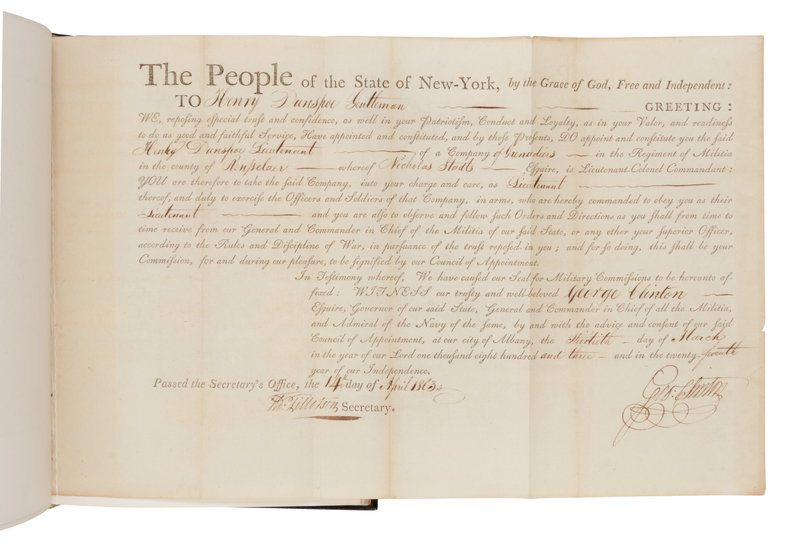 The People of the State of New-York, by the Grace of God, Free and Independent:
TO Henry Dunspee Gentleman GREETING:
WE, reposing especial trust and confidence, as well in your Patriotism, Conduct and Loyalty, as in your Valor, and readiness
to do us good and faithful Service, Have appointed and constituted, and by these Presents, DO appoint and constitute you the said
Henry Dunspee Lieutenant of a Company of Grenadiers in the Regiment of Militia
in the county of Rensselaer whereof Nicholas Staats Esquire, is Lieutenant-Colonel Commandant:
YOU are therefore to take the said Company, into your charge and care, as Lieutenant
thereof, and duly to exercise the Officers and Soldiers of that Company, in arms, who are hereby commanded to obey you as their
Lieutenant and you are also to observe and follow such Orders and Directions as you shall from time to
time receive from our General and Commander in Chief of the Militia of our said State, or any other your superior Officer,
according to the Rules and Discipline of War, in pursuance of the trust reposed in you; and for so doing, this shall be your
Commission, for and during our pleasure, to be signified by our Council of Appointment.
In Testimony whereof, We have caused our Seal for Military Commissions to be hereunto af-
fixed: WITNESS our trusty and well-beloved George Clinton
Esquire, Governor of our said State, General and Commander in Chief of all the Militia,
and Admiral of the Navy of the same, by and with the advice and consent of our said
Council of Appointment, at our city of Albany, the thirtieth day of March
in the year of our Lord one thousand eight hundred and three and in the twenty-seventh
year of our Independence.
Passed the Secretary's Office, the 14th day of April 1803
Th. Tillotson, Secretary.
Geo. Clinton